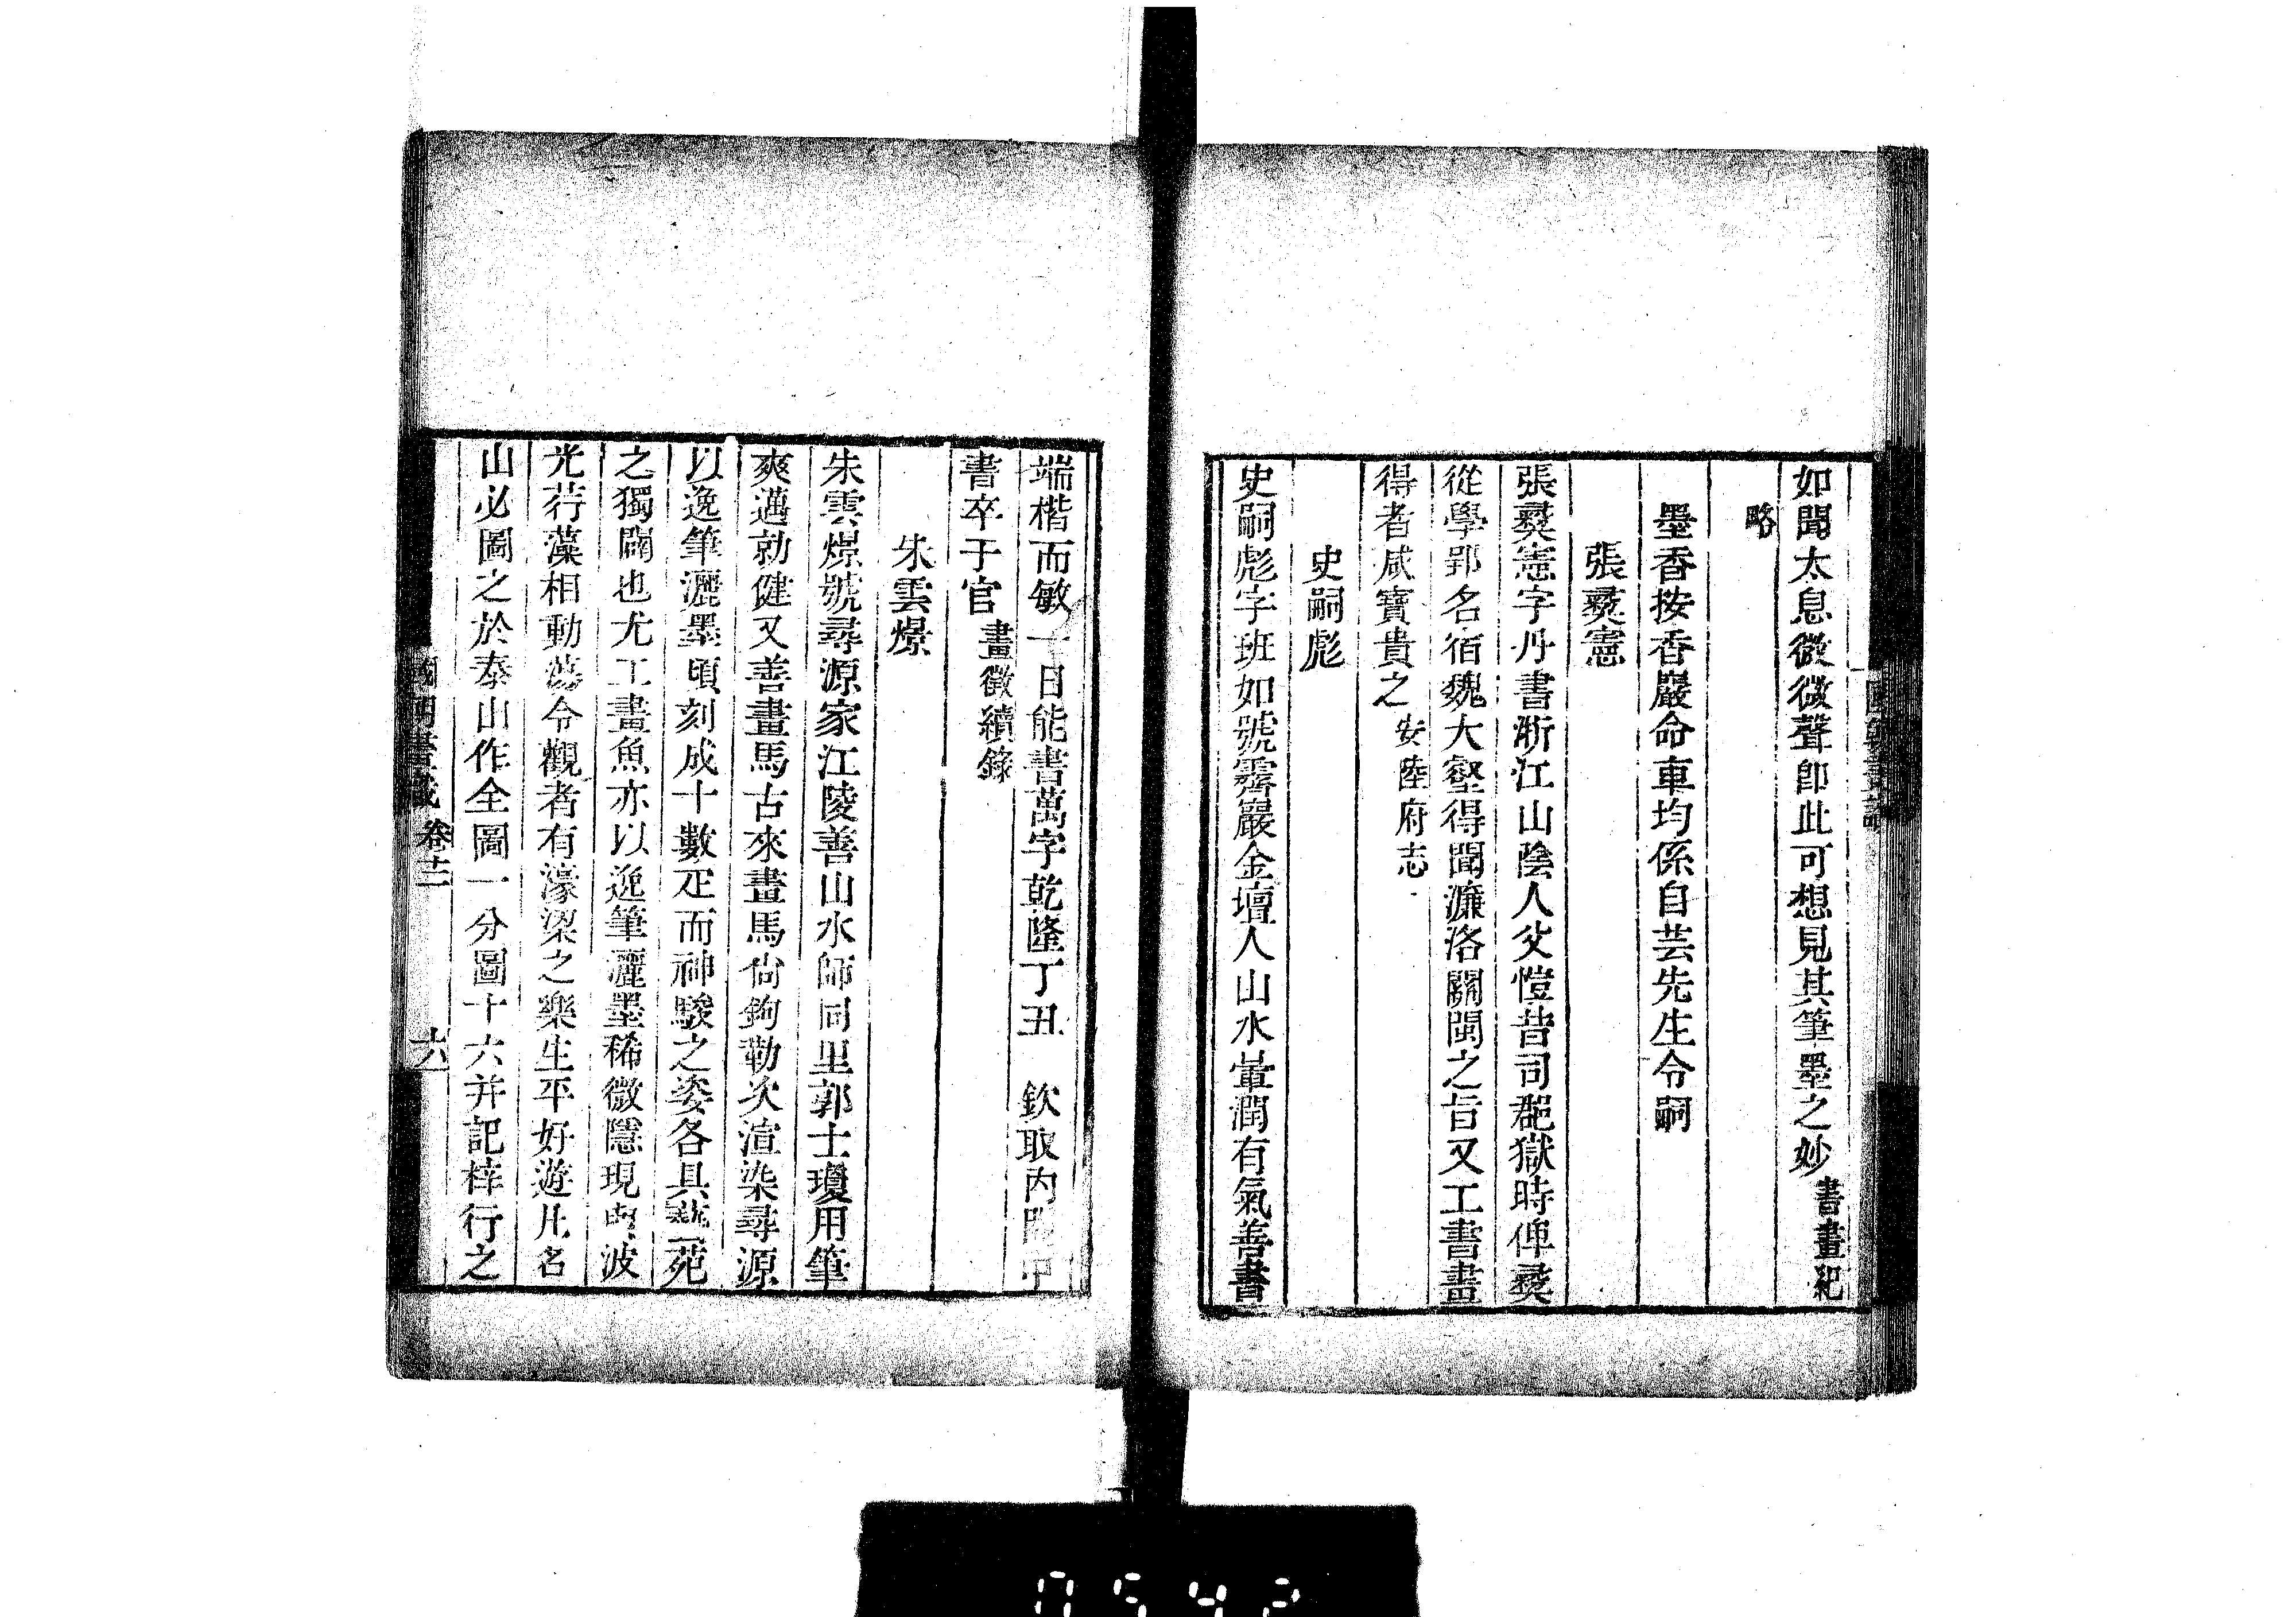 如聞太息微微聲卽此可想見其筆墨之妙書畫紀
略
墨香按香巖命車均係自芸先生令嗣
張燹憲
張燹憲字丹書浙江山陰人父愷昔司郡獄時俾燹
從學郢名宿魏大壑得聞濂洛關閩之旨又工書畫
得者咸寶貴之安陸府志
史嗣彪
史嗣彪字班如號霽巖金壇人山水暈潤有氣善書
端楷而敏一日能書萬字乾隆丁丑 欽取內閣中
書卒于官畫徵續錄
朱雲燝
朱雲燝號尋源家江陵善山水師同里郭士瓊用筆
爽邁勍健又善畫馬古來畫馬尙鉤勒次渲染尋源
以逸筆灑墨頃刻成十數疋而神駿之姿各具藝苑
之獨闢也尤工畫魚亦以逸筆灑墨稀微隱現與波
光荇藻相動蕩令觀者有濠梁之樂生平好遊凡名
山必圖之於泰山作全圖一分圖十六并記梓行之
國朝畫識 卷十二 六
0542